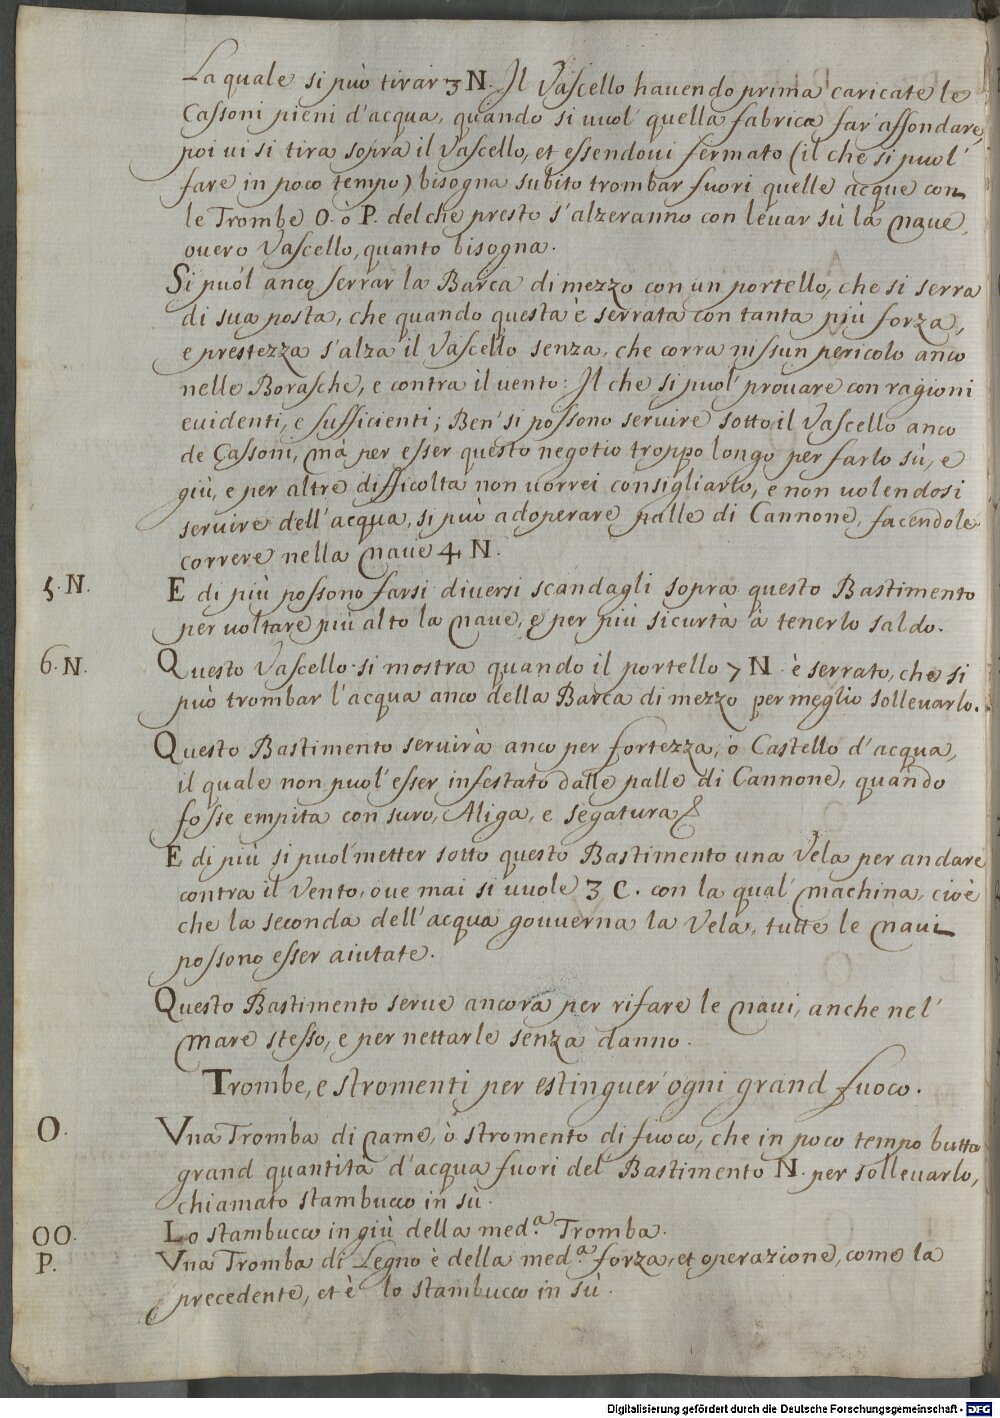 La quale si può tirar 3 N. Il Vascello hauendo prima caricate le
Cassoni pieni d'acqua, quando si uuol' quella fabrica far' affondare,
poi ui si tira sopra il Vascello, et essendoui fermato (il che si puol'
fare in poco tempo) bisogna subito trombar fuori quelle acque con
le Trombe O. ò P. del che presto s'alzeranno con leuar sù la Naue,
ouero Vascello, quanto bisogna.
Si puól anco serrar la Barca di mezzo con un portello, che si serra
di sua posta, che quando questa è serrata con tanta più forza,
e prestezza s'alza il Vascello senza, che corra nissun pericolo anco
nelle Borasche, e contra il uento: Il che si puol' prouare con ragioni
euidenti, e sufficienti; Ben' si possono seruire sotto il Vascello anco
de Cassoni, mà per esser questo negotio troppo longo per farlo sù, e
giù, e per altre difficolta non uorrei consigliarlo, e non uolendosi
seruire dell'acqua, si può adoperare palle di Cannone, facendole
correre nella Naue 4 N.
5. N. E di più possono farsi diuersi scandagli sopra questo Bastimento
per uoltare più alto la Naue, e per più sicurtà à tenerlo saldo.
6. N. Questo Vascello si mostra quando il portello 7 N. è serrato, che si
può trombar l'acqua anco della Barca di mezzo per meglio solleuarlo.
Questo Bastimento seruirà anco per fortezza, ò Castello d'acqua,
il quale non puol' esser infestato dalle palle di Cannone, quando
fosse empita con suro, Aliga, e segatura
E di più si puol' metter sotto questo Bastimento una Vela per andare
contra il Vento, oue mai si uuole 3 C. con la qual' machina, cioè
che la seconda dell'acqua gouuerna la Vela, tutte le Naui
possono esser aiutate.
Questo Bastimento serue ancora per rifare le Naui, anche nel'
mare stesso, e per nettarle senza danno.
Trombe, e stromenti per estinguer' ogni grand fuoco.
O. Vna Tromba di Rame, ò stromento di fuoco, che in poco tempo butta
grand quantità d'acqua fuori del Bastimento N. per solleuarlo,
chiamato stambucco in sù.
OO. Lo stambucco in giù della med.ª Tromba.
P. Vna Tromba di Legno è della med.ª forza, et operazione, come la
precedente, et è lo stambucco in sù.
Digitalisierung gefördert durch die Deutsche Forschungsgemeinschaft - DFG